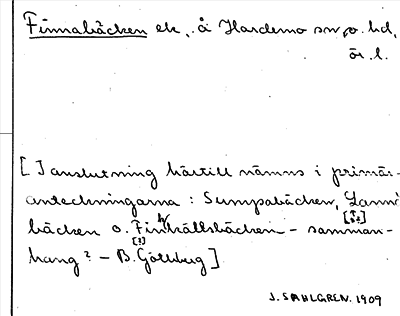 Finnabäcken ek, å Hardemo sn, o. hd,
ör. l.
[I anslutning härtill nämns i primär-
anteckningarna: Sumpabäcken,
bäcken o. Finhältsbäcken – samman-
[?]
hang? – B. Götlburg]
J. SAHLGREN. 1909